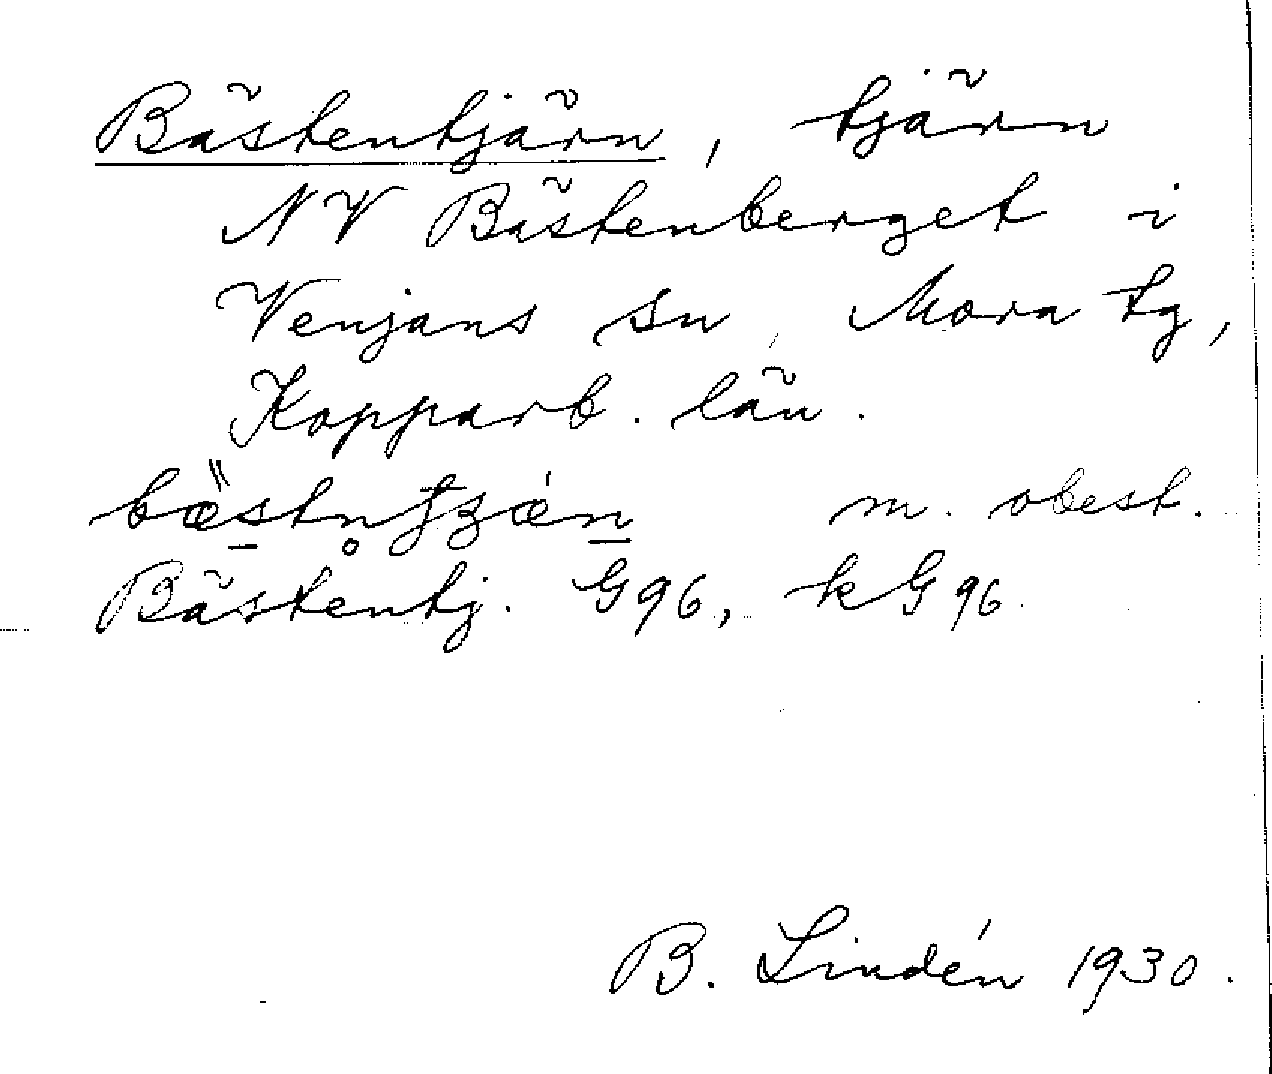 Bästentjärn, tjärn
NV Bästenberget i
Venjans sn, Mora tg,
Kopparb. län.
m. obest.
Bästentj. G96, kG96.
B. Lindén 1930.